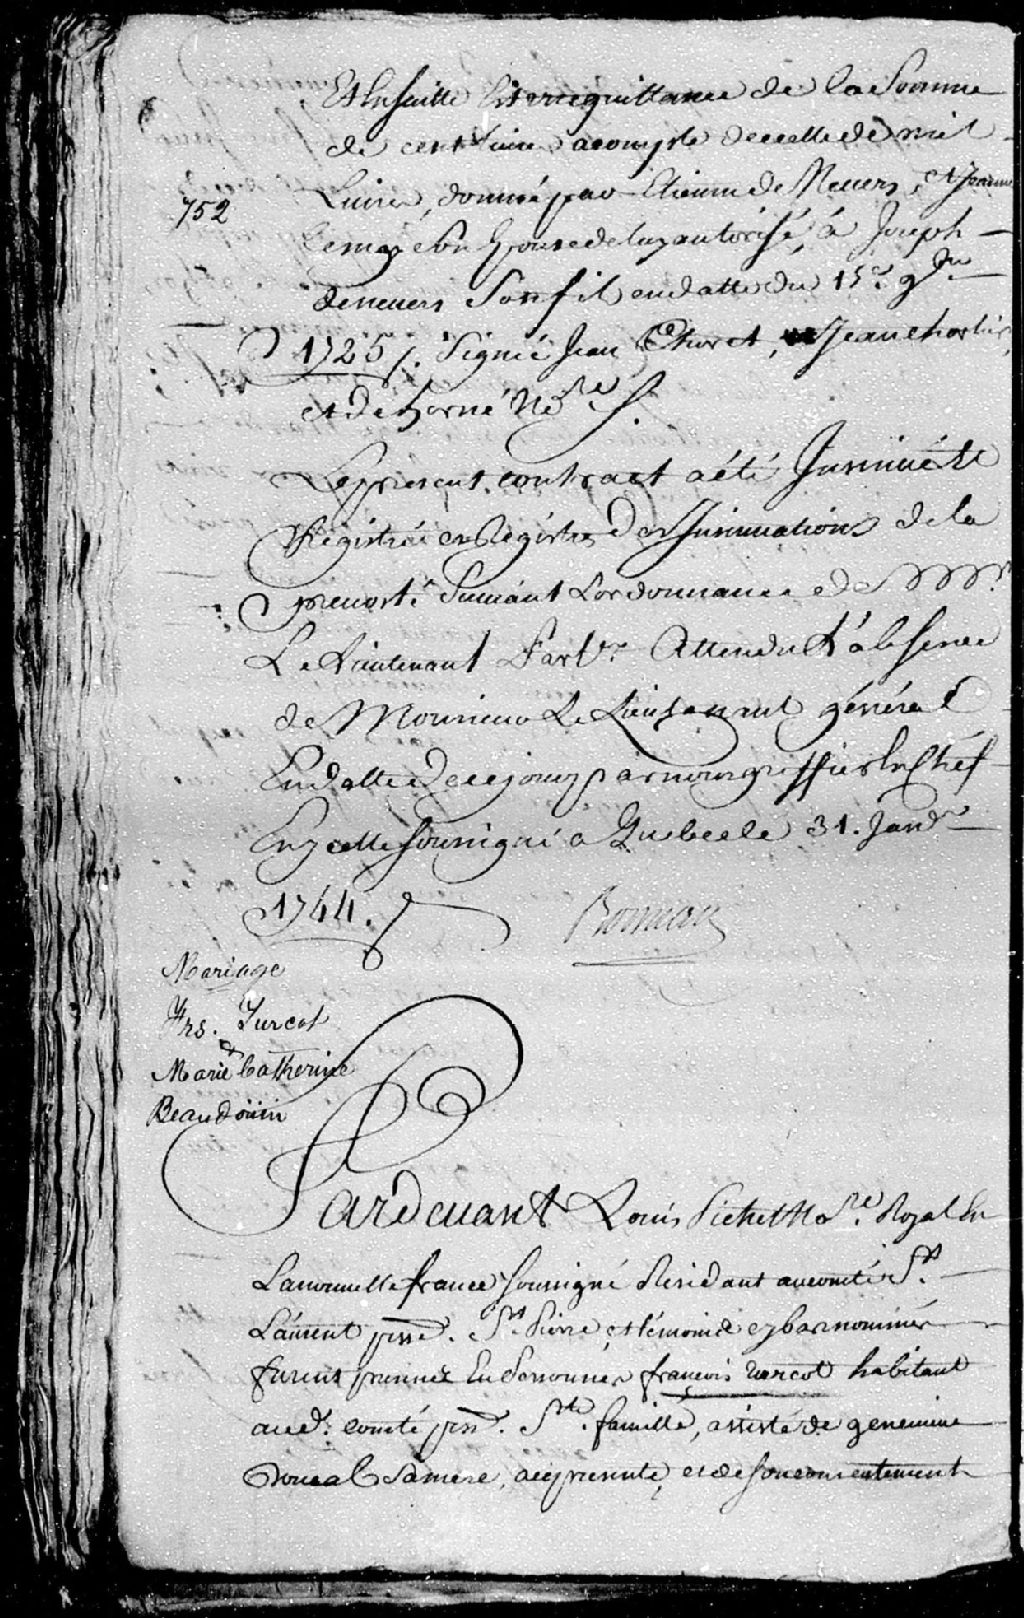 Et Ensuitte Est une quittance de la Somme
de cent Livres acompte de celle de mil
Livres, donné par Etienne de Neuers, et Jeanne
752
Lemay son Epouse de luy autorisé, à Joseph
deneuers Son fils en datte du 15e 9bre
1725 /. Signé Jean Choret, Jean charlie,
et de horné Nore /.
Le present contract a été Insinué &
Régistré es Régistres des Insinuations de la
prevosté Suivant L'ordonnance de Mr.
Le Lieutenant Partr. Attendu L'absence
de Monsieur Le Lieutenant général
En datte de ce jour par nous greffier En Chéf
En ycelle soussigné à Quebec le 31. Janvr
1744. /
Boisseau
Mariage
Frs. Turcot
&
Marie Catherine
Beaudouin
Pardeuant Louis Pichet Nore. Royal En
La nouuelle france Soussigné Residant au comté St.
Laurent psse. St. Pierre, et témoins cy bas nommés
furent presens En Personnes françois turcot habitant
aud. comté psse. Ste. famille, assisté de geneuieue
Roual Sa mere, acy presente, et de son consentement